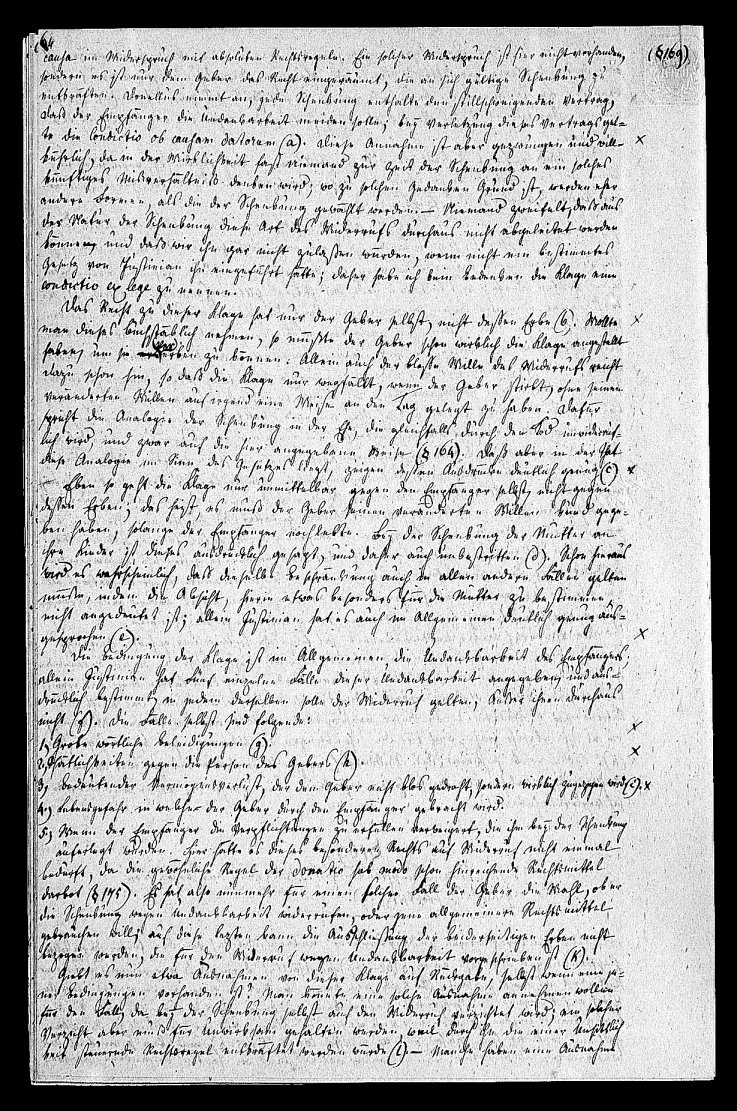 64
(§169)
causa im Widerspruch mit absoluten Rechtsregeln. Ein solcher Widerspruch ist hier nicht vorhanden,
sondern es ist nur dem Geber das Recht eingeräumt, die an sich gültige Schenkung zu
entkräften. Donellus nimmt an, jede Schenkung enthalte den stillschweigenden Vertrag,
daß der Empfänger die Undankbarkeit meiden solle; bey Verletzung dieses Vertrags gel-
te die Condictio ob causam datorum (a). Diese Annahme ist aber gezwungen und will-
kührlich, da in der Wirklichkeit fast niemand zur Zeit der Schenkung an ein solches
künftiges Misverhältniß denken wird; wo zu solchen Gedanken Grund ist, werden eher
andere Formen, als die der Schenkung gewählt werden. – Niemand zweifelt, daß aus
der Natur der Schenkung diese Art des Widerrufs durchaus nicht abgeleitet werden
könne, und daß wir ihn gar nicht zulassen würden, wenn nicht ein bestimmtes
Gesetz von Justinian ihn eingeführt hätte; daher habe ich kein Bedenken die Klage eine
condictio ex lege zu nennen.
Das Recht zu dieser Klage hat nur der Geber selbst, nicht dessen Erbe (b). Wollte
man dieses buchstäblich nehmen, so müßte der Geber schon wirklich die Klage angestellt
haben, um sie vererben zu können: Allein auch der bloße Wille des Widerrufs reicht
dazu schon hin, so daß die Klage nur wegfällt, wenn der Geber stirbt, ohne seinen
veränderten Willen auf irgend eine Weise an den Tag gelegt zu haben. Dafür
spricht die Analogie der Schenkung in der Ehe, die gleichfalls durch den Tod unwiderruf-
lich wird, und zwar auf die hier angegebene Weise (§ 164). Daß aber in der That
diese Analogie im Sinn des Gesetzes liegt, zeigen dessen Ausdrücke deutlich genug (c)
Eben so geht die Klage nur unmittelbar gegen den Empfänger selbst, nicht gegen
dessen Erben; das heißt, es muß der Geber seinen veränderten Willen kund gege-
ben haben, solange der Empfänger noch lebte. Bey der Schenkung der Mutter an
ihre Kinder ist dieses ausdrücklich gesagt, und daher auch unbestritten (d). Schon hieraus
wird es wahrscheinlich, daß dieselbe Beschränkung auch in allen andern Fällen gelten
müsse, indem die Absicht, hierin etwas besonders für die Mutter zu bestimmen,
nicht angedeutet ist; allein Justinian hat es auch im Allgemeinen deutlich genug aus-
gesprochen (e).
Die Bedingung der Klage ist im Allgemeinen die Undankbarkeit des Empfängers;
allein Justinian hat fünf einzelne Fälle dieser Undankbarkeit angegeben, und aus-
drücklich bestimmt, in jedem derselben solle der Widerruf gelten, außer ihnen durchaus
nicht (f). Die Fälle selbst sind folgende:
1) Grobe wörtliche Beleidigungen (g).
2) Thätlichkeiten gegen die Person des Gebers (h).
3) Bedeutender Vermögensverlust, der dem Geber nicht blos gedroht, sondern wirklich zugezogen wird (i).
4) Lebensgefahr in welche der Geber durch den Empfänger gebracht wird.
5) Wenn der Empfänger die Verpflichtungen zu erfüllen verweigert, die ihm bey der Schenkung
auferlegt wurden. Hier hätte es dieses besonderen Rechts auf Widerruf nicht einmal
bedurft, da die gewöhnliche Regel der donatio sub modo schon hinreichende Rechtsmittel
darbot (§ 175). Es hat also nunmehr für einen solchen Fall der Geber die Wahl, ob er
die Schenkung wegen Undankbarkeit widerrufen, oder jene allgemeinere Rechtsmittel
gebrauchen will; auf diese letzten kann die Ausschließung der beiderseitigen Erben nicht
bezogen werden, die für den Widerruf wegen Undankbarkeit vorgeschrieben ist (k).
Giebt es nun etwa Ausnahmen von dieser Klage auf Rückgabe, selbst wenn eine je-
ner Bedingungen vorhanden ist? Man könnte eine solche Ausnahme annehmen wollen
für den Fall, da bey der Schenkung selbst auf den Widerruf verzichtet wird; ein solcher
Verzicht aber muß für unwirksam gehalten werden, weil durch ihn die einer Unsittlich-
keit steuernde Rechtsregel entkräftet werden würde (l). – Manche haben eine Ausnahme